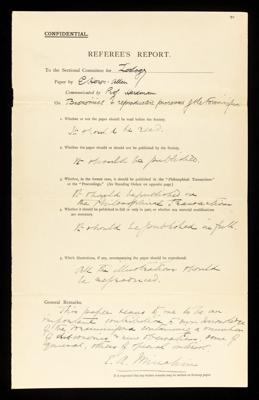 CONFIDENTIAL.
REFEREE'S REPORT.
To the Sectional Committee for Zoology
Paper by E. Heron-Allen
Communicated by Prof Herdman
On Bionomics & reproductive processes of the Foraminifera
1. Whether or not the paper should be read before the Society.
It should be read.
2. Whether the paper should or should not be published by the Society.
It should be published.
3. Whether, in the former case, it should be published in the "Philosophical Transactions"
or the "Proceedings." (See Standing Orders on opposite page.)
It should be published in
the Philosophical Transactions
4. Whether it should be published in full or only in part, or whether any material modifications
are necessary.
It should be published in full.
5. Which illustrations, if any, accompanying the paper should be reproduced.
All the illustrations should
be reproduced.
General Remarks.
This paper seems to me to be an
important contribution to our knowledge
of the Foraminifera containing a number
of discoveries & new observations, some of
general, others of special interest.
E. A. Minchin
It is requested that any further remarks may be written on foolscap paper.